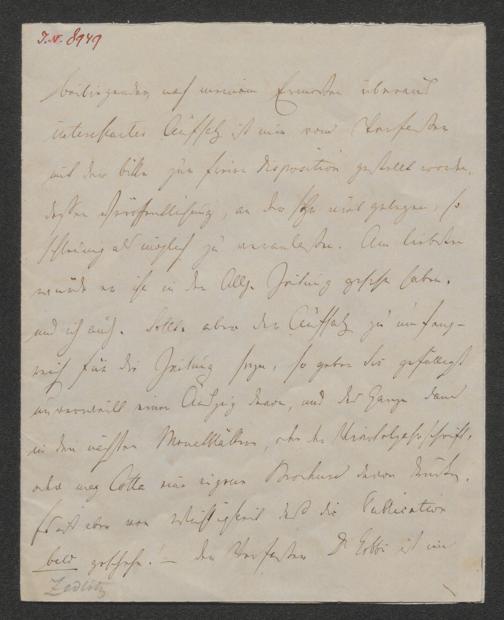 I.N. 8949
Beiliegender, nach meinem Ermessen überaus
interessanter Aufsatz ist mir vom Verfasser
mit der bitte zur freien Disposition gestellt worden,
dessen Veröffentlichung, an der sehr viel gelegen, so
schleunig als möglich zu veranlassen. Am liebsten
würde er ihn in der Allg. Zeitung gesehen haben,
und ich auch. Sollte aber der Aufsatz zu umfang-
reich für die Zeitung seyn, so geben Sie gefälligst
einen Auszug davon, und das Ganze dann
in den nächsten Monatblättern, oder der Vierteljahrsschrift,
oder mag Cotta eine eigene Brochure davon drucken.
Es ist aber von Wichtigkeit daß die Publication
bald geschehe! — Der Verfasser Dr ist ein
Zedlitz